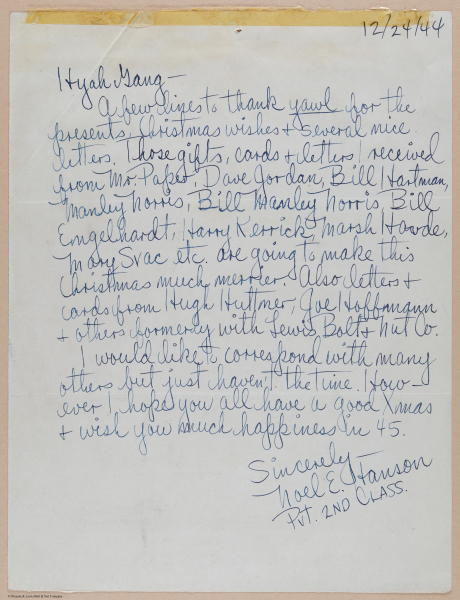 12/24/44
Hyah Gang—
A few lines to thank yawl for the
presents, Christmas wishes & several nice
letters. Those gifts, cards & letters I received
from Mr. Paper, Dave Jordan, Bill Hartman,
Manley Norris, Bill Manley Norris, Bill
Engelhardt, Harry Kerrick, Marsh Howde,
Mary Svac etc. are going to make this
Christmas much merrier. Also letters &
cards from Hugh Huttner, Joe Hoffmann
& others formerly with Lewis Bolt & Nut Co.
I would like to correspond with many
others but just haven't the time. How-
ever I hope you all have a good Xmas
& wish you much happiness in 45.
Sincerely—
Noel E. Hanson
Pvt. 2ND CLASS.